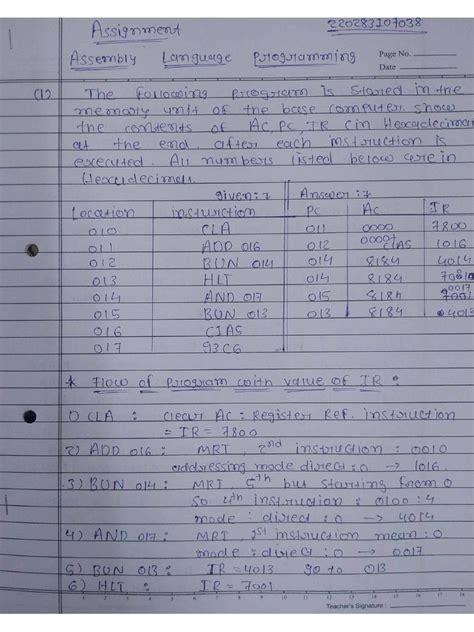 Assignment 220283107038
Assembly Language Programming Page No.
Date
(12 The following program is stored in the
memory unit of the base computer. show
the contents of AC, PC, IR (in Hexadecimal
at the end, after each instruction is
executed. All numbers listed below are in
Hexadecimal.
given:7 Answer:7
Location insturction PC AC IR
010 CLA 011 0000 7800
011 ADD 016 012 0000+C1A5 1016
012 BUN 014 014 8184 4014
013 HLT 014 8184
014 AND 017 015 8184 0017 7001
015 BUN 013 013 8184 4013
016 C1A5
017 93C6
* Flow of program with value of IR :
1) CLA : Clear AC : Register Ref. instruction
= IR = 7800
2) ADD 016 : MRT, 2nd instruction : 0010
addressing mode direct : 0 → 1016
3) BUN 014 : MRT, 5th but starting from 0
So 4th instruction : 0100 : 4
mode : direct : 0 → 4014
4) AND 017 : MRT, instruction mean : 0
mode : direct : 0 → 0017
5) BUN 013 : IR = 4013 go to 013
6) HLT : IR = 7001
Teacher's Signature :